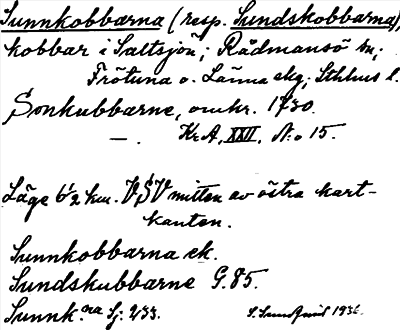 Sunnkobbarna (resp. Sundskobbarna),
kobbar i Saltsjön; Rådmansö sn;
Frötuna o. Länna skg; Sthlms l.
Sonkubbarne, omkr. 1730.
—. Kr.A. XXII. N:o 15.
Läge 6 1/2 km. VSV mitten av östra kart-
kanten.
Sunnkobbarna ek.
Sundskubbarne G. 85.
Sunnk:na Sj: 233.
1936.